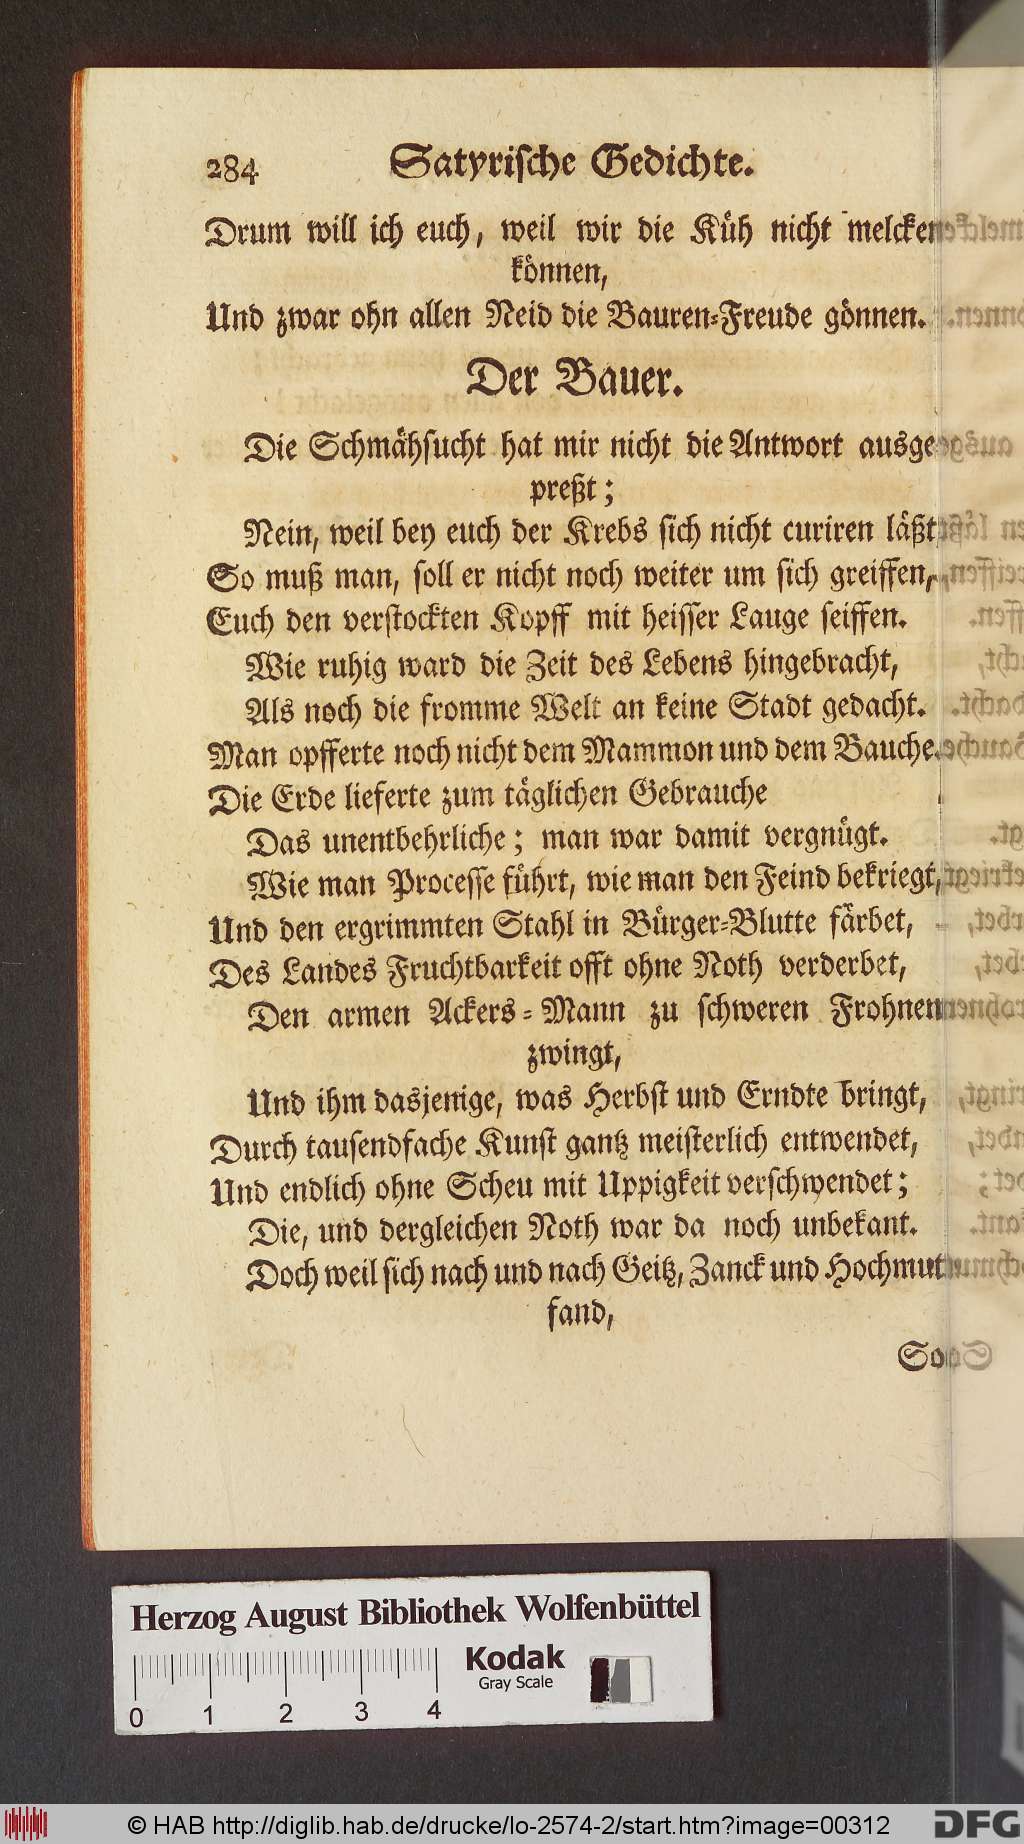 284 Satyrische Gedichte.
Drum will ich euch, weil wir die Küh nicht melcken
können,
Und zwar ohn allen Neid die Bauren-Freude gönnen.
Der Bauer.
Die Schmähsucht hat mir nicht die Antwort ausge-
preßt;
Nein, weil bey euch der Krebs sich nicht curiren läßt,
So muß man, soll er nicht noch weiter um sich greiffen,
Euch den verstockten Kopff mit heisser Lauge seiffen.
Wie ruhig ward die Zeit des Lebens hingebracht,
Als noch die fromme Welt an keine Stadt gedacht.
Man opfferte noch nicht dem Mammon und dem Bauche.
Die Erde lieferte zum täglichen Gebrauche
Das unentbehrliche; man war damit vergnügt.
Wie man Processe führt, wie man den Feind bekriegt,
Und den ergrimmten Stahl in Bürger-Blutte färbet,
Des Landes Fruchtbarkeit offt ohne Noth verderbet,
Den armen Ackers-Mann zu schweren Frohnen
zwingt,
Und ihm dasjenige, was Herbst und Erndte bringt,
Durch tausendfache Kunst gantz meisterlich entwendet,
Und endlich ohne Scheu mit Uppigkeit verschwendet;
Die, und dergleichen Noth war da noch unbekant.
Doch weil sich nach und nach Geitz, Zanck und Hochmut
fand,
So
Herzog August Bibliothek Wolfenbüttel
Kodak
Gray Scale
0 1 2 3 4
© HAB http://diglib.hab.de/drucke/lo-2574-2/start.htm?image=00312
DFG